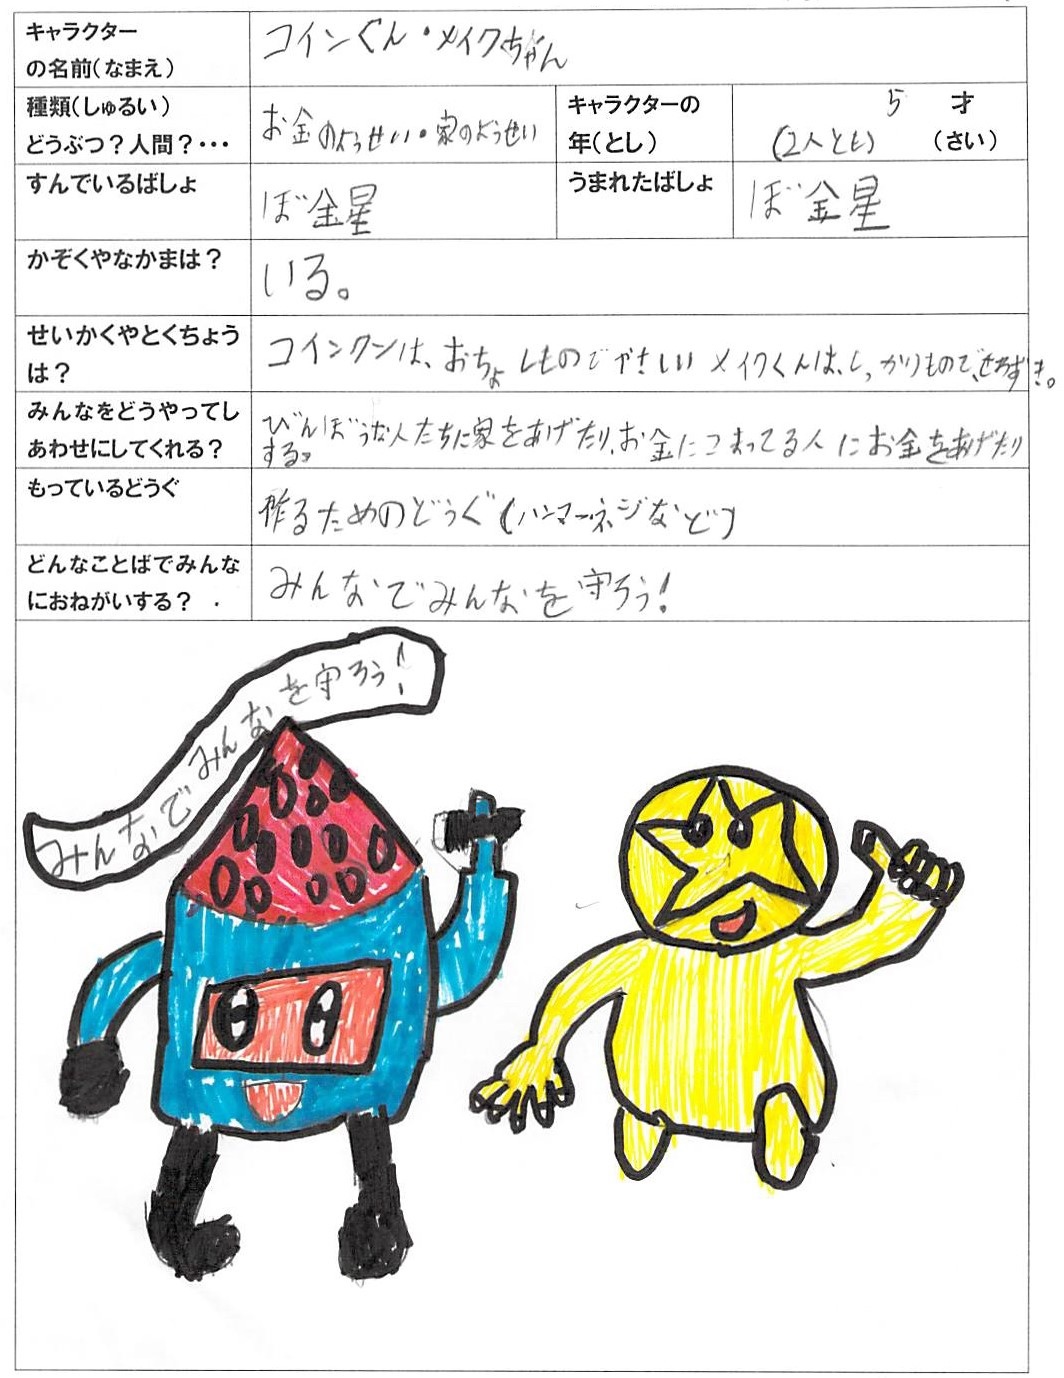 キャラクター
の名前(なまえ)
コインくん・メイクちゃん
種類(しゅるい)
どうぶつ？人間？・・・
お金のようせい・家のようせい
キャラクターの
年(とし)
5 才
(2人とも) (さい)
すんでいるばしょ
ぼ金星
うまれたばしょ
ぼ金星
かぞくやなかまは？
いる。
せいかくやとくちょう
は？
コインクンは、おちょしものでやさしい メイクくんは、しっかりもので、せわずき。
みんなをどうやってし
あわせにしてくれる？
びんぼうな人たちに家をあげたり、お金にこまってる人にお金をあげたり
する。
もっているどうぐ
作るためのどうぐ(ハンマーネジなど)
どんなことばでみんな
におねがいする？
みんなでみんなを守ろう！
みんなでみんなを守ろう！